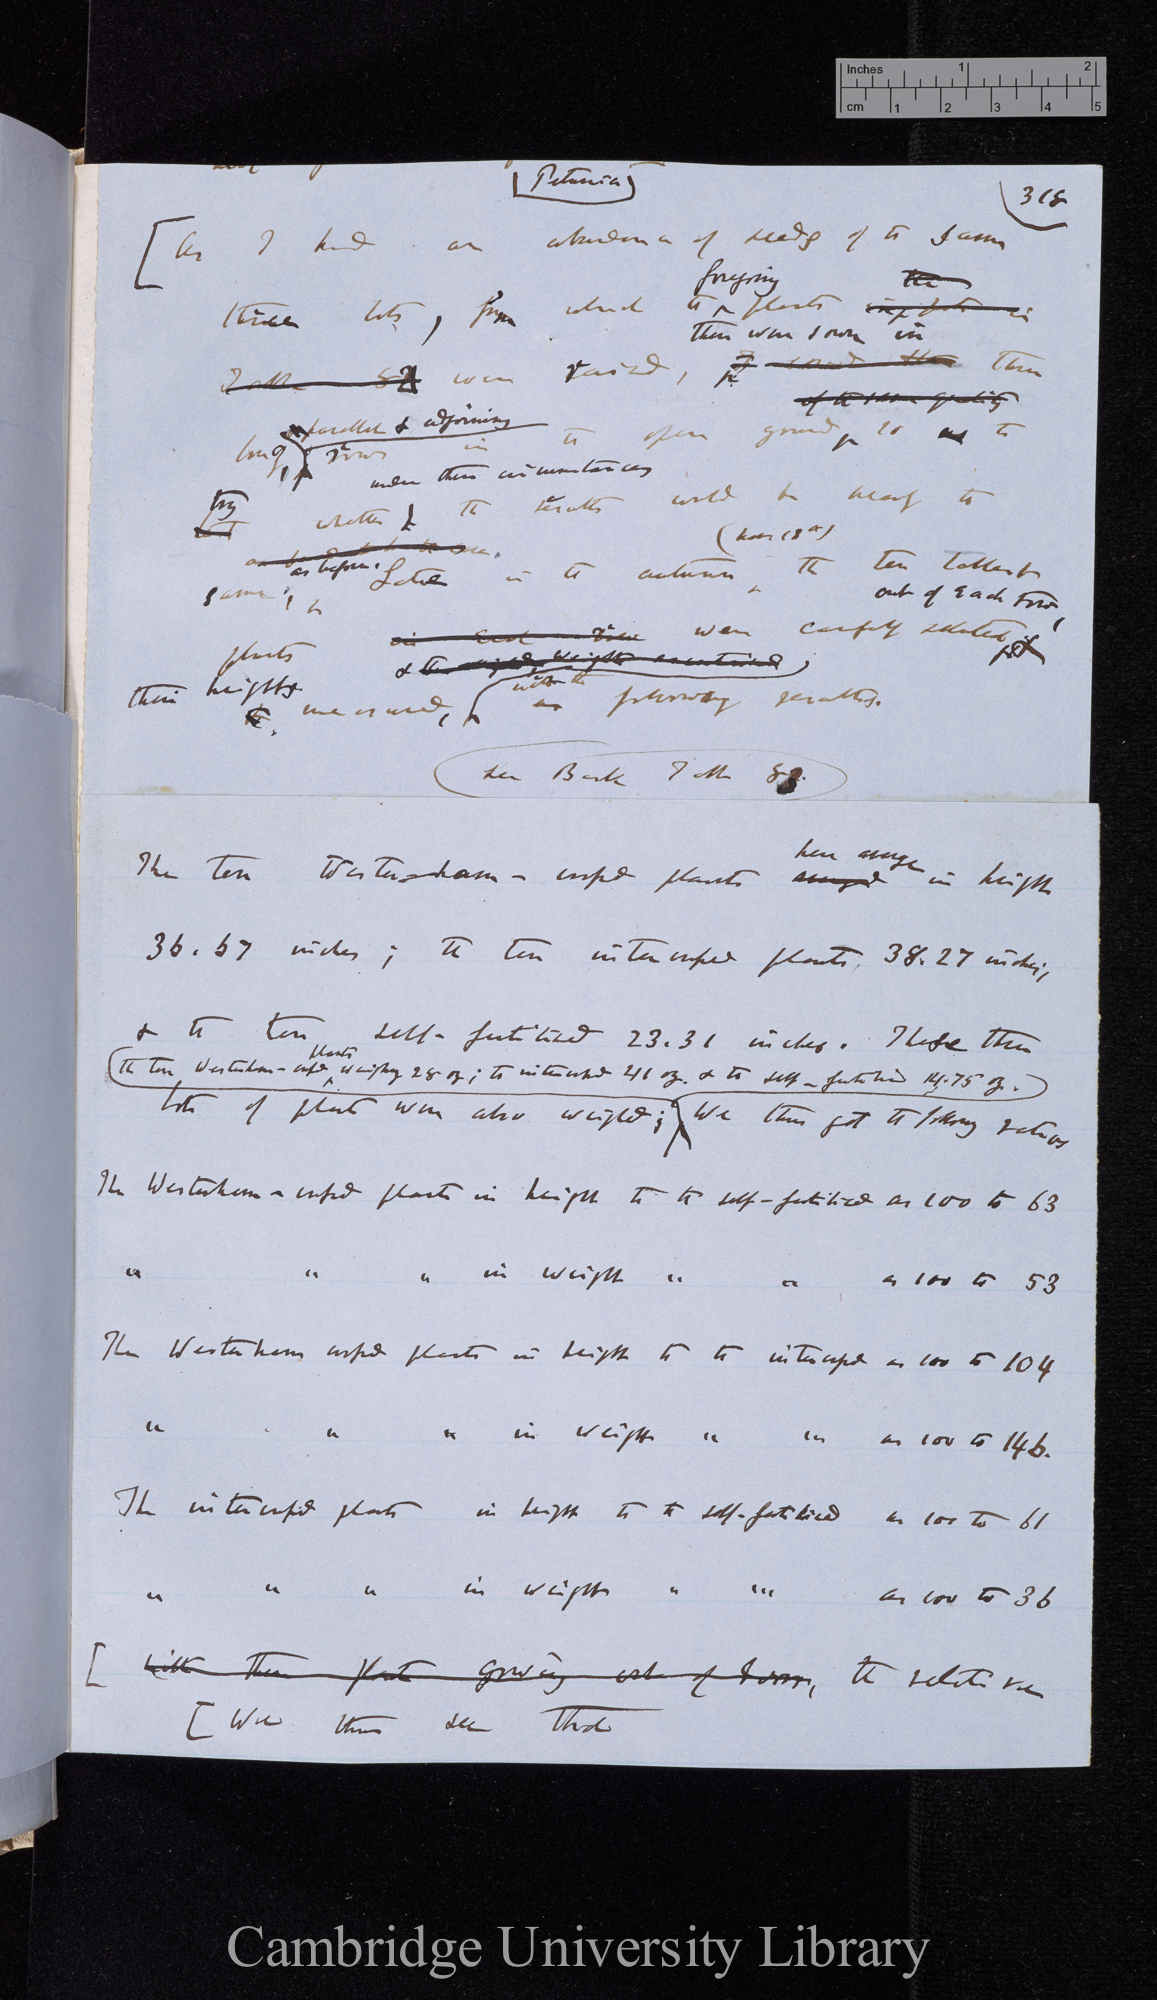 Inches 1 2
cm 1 2 3 4 5
(Petunia)
318
[As I had an abundance of seeds of the same
foregoing the
three lots, from which the plants
then were sown in
Table 82 were raised, I sowed them three
of the same quality
parallel & adjoining
long, rows in the open ground, so as to
under these circumstances
try
whether the results would be nearly the
(Nov 18th)
as before.
same; Late in the autumn, the ten tallest
out of each row,
plants in each row were carefully selected
& the weights ascertained
their heights
measured, with the following results.
See Back Table 82.
here average
The ten Westerham-crossed plants averaged in height
36.67 inches; the ten intercrossed plants, 38.27 inches,
& the ten self-fertilised 23.31 inches. These three
plants
the ten Westerham-crossed weighing 28 oz; the intercrossed 41 oz. & the self-fertilised 14.75 oz.
lots of plants were also weighed; We thus got the following ratios
The Westerham-crossed plants in height to the self-fertilised as 100 to 63
" " " in weight " " as 100 to 53
The Westerham crossed plants in height to the intercrossed as 100 to 104
" " " in weight " " as 100 to 146.
The intercrossed plants in height to the self-fertilised as 100 to 61
" " " in weight " " as 100 to 36
[ With these plants growing out of doors, the relative
[We thus see that
Cambridge University Library